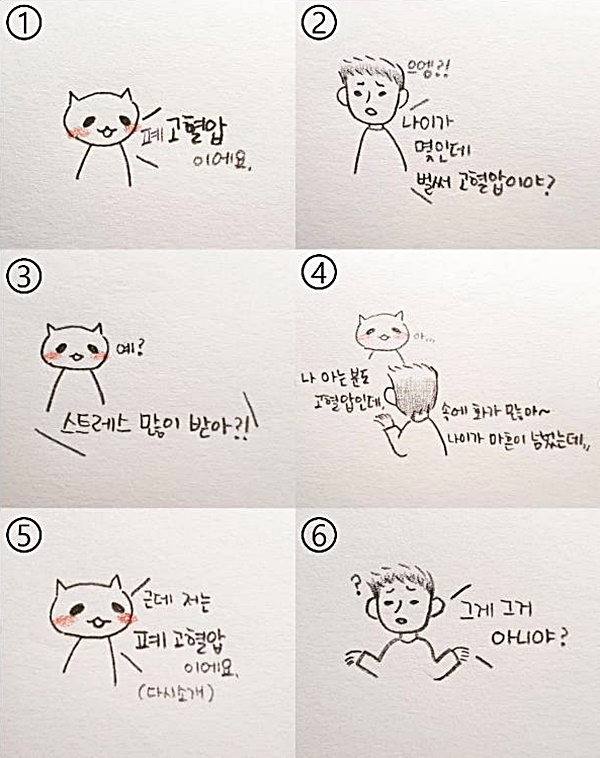 ①
폐 고혈압
이에요.
②
으엠?!
나이가
몇인데
벌써 고혈압이야?
③
예?
스트레스 많이 받아?!
④
아...
나 아는분도
고혈압인데,
속에 화가 많아~
나이가 마흔이 넘었는데,,
⑤
근데 저는
폐 고혈압
이에요.
(다시소개)
⑥
?
그게 그거
아니야?